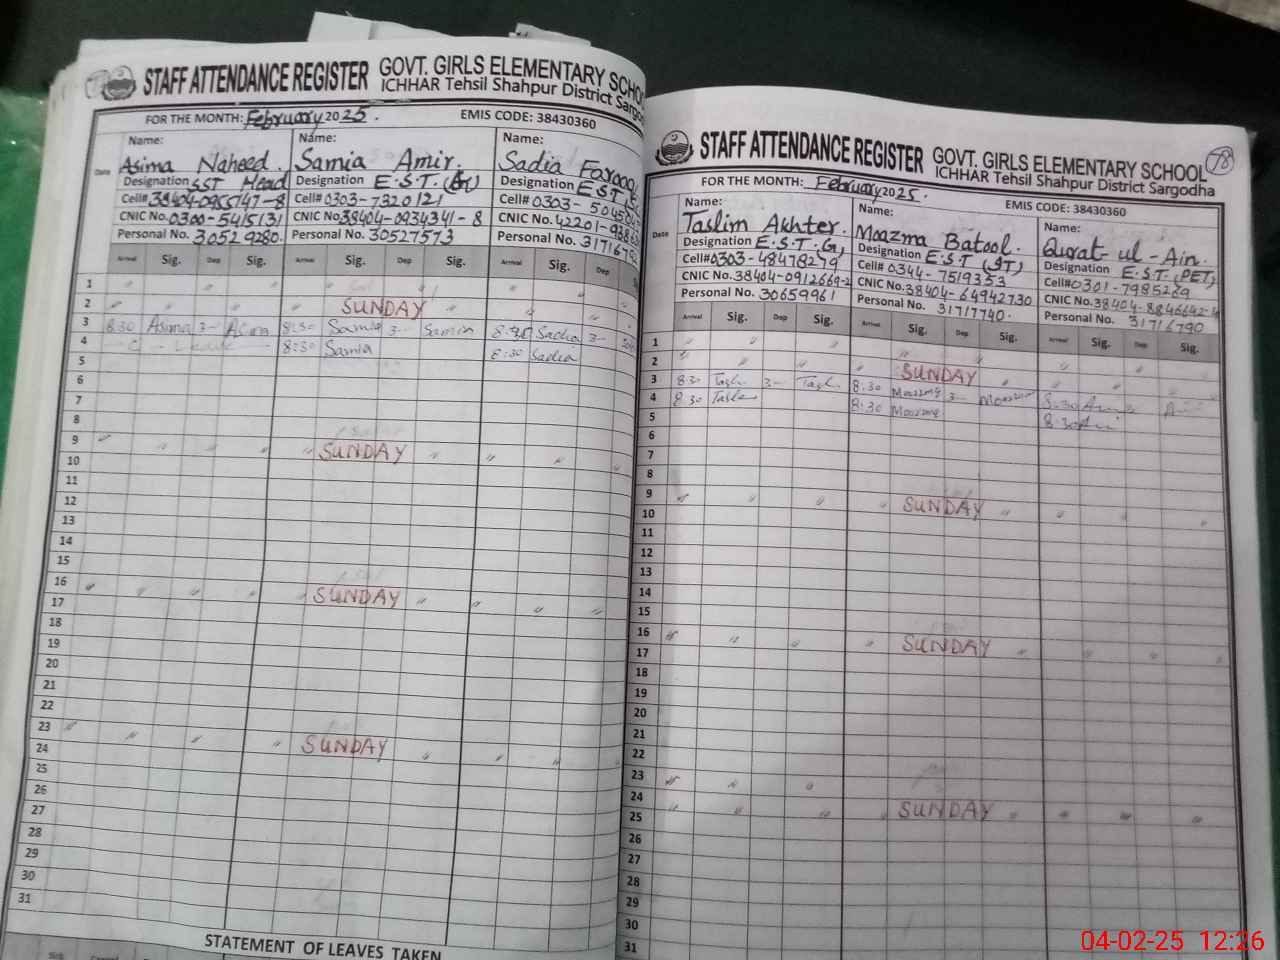 STAFF ATTENDANCE REGISTER GOVT. GIRLS ELEMENTARY SCHOOL
ICHHAR Tehsil Shahpur District Sargodha
FOR THE MONTH: February 2025. EMIS CODE: 38430360
Date
Name: Asima Naheed.
Designation SST Head
Cell# 38404-0955747-8
CNIC No. 0300-5415131
Personal No. 30529280.
Name: Samia Amir.
Designation E.S.T.
Cell# 0303-7320121
CNIC No. 38404-0934341-8
Personal No. 30527573
Name: Sadia Farooq
Designation E.S.T
Cell# 0303-
CNIC No. 42201-
Personal No.
Arrival Sig. Dep Sig. Arrival Sig. Dep Sig. Arrival Sig. Dep
1
2 SUNDAY
3 8:30 Asima 3- Asima 8:30 Samia 3- Samia 8:30 Sadia 3-
4 8:30 Samia 8:30 Sadia
5
6
7
8
9 SUNDAY
10
11
12
13
14
15
16 SUNDAY
17
18
19
20
21
22
23 SUNDAY
24
25
26
27
28
29
30
31
STATEMENT OF LEAVES TAKEN
STAFF ATTENDANCE REGISTER GOVT. GIRLS ELEMENTARY SCHOOL 78
ICHHAR Tehsil Shahpur District Sargodha
FOR THE MONTH: February 2025. EMIS CODE: 38430360
Date
Name: Taslim Akhter.
Designation E.S.T.G,
Cell# 0303-4847829
CNIC No. 38404-0912669-2
Personal No. 30659961
Name: Moazma Batool.
Designation E.S.T
Cell# 0344-7519353
CNIC No. 38404-64942730
Personal No. 31717740.
Name: Qurat-ul-Ain.
Designation E.S.T. (PET)
Cell# 0301-7985269
CNIC No. 38404-8846642-
Personal No. 31716790
Arrival Sig. Dep Sig. Arrival Sig. Dep Sig. Arrival Sig. Dep Sig.
1
2 SUNDAY
3 8.30 3- 8.30 Moazma 3- Moazma 8.30
4 8.30 8.30 Moazma 8.30
5
6
7
8
9 SUNDAY
10
11
12
13
14
15
16 SUNDAY
17
18
19
20
21
22
23
24 SUNDAY
25
26
27
28
29
30
31
04-02-25 12:26